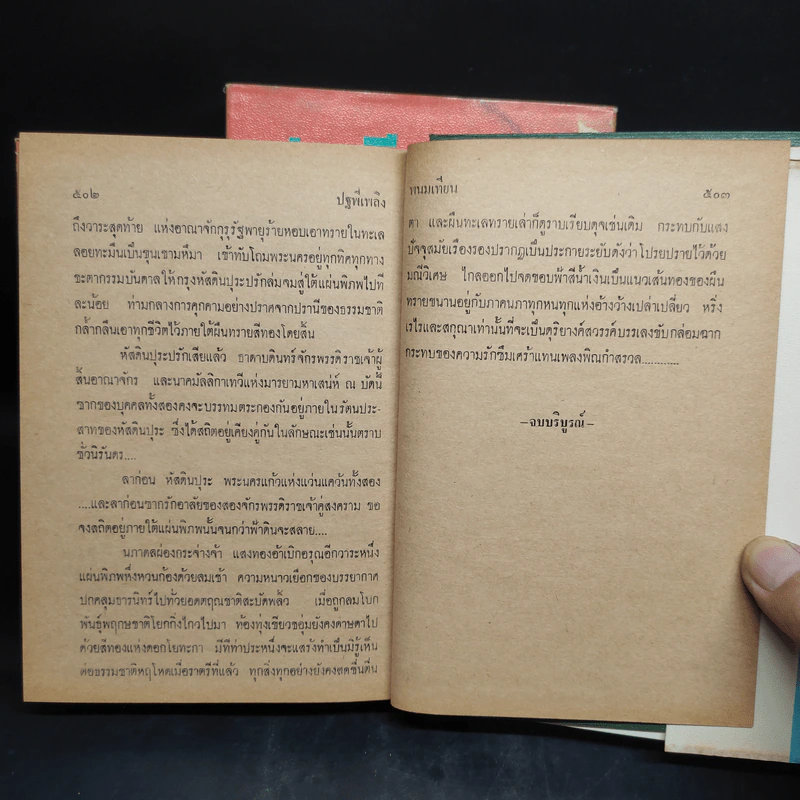 ๕๐๒
ปฐพีเพลิง
ถึงวาระสุดท้าย แห่งอาณาจักกุรุรัฐพายุร้ายหอบเอาทรายในทะเล
ลอยทะมึนเป็นขุนเขามหึมา เข้าทับโถมพระนครอยู่ทุกทิศทุกทาง
ชะตากรรมบันดาลให้กรุงหัสดินปุระปรักล่มจมสู่ใต้แผ่นพิภพไปที
ละน้อย ท่ามกลางการคุกคามอย่างปราศจากปรานีของธรรมชาติ
กล้ำกลืนเอาทุกชีวิตไว้ภายใต้ผืนทรายสีทองโดยสิ้น
หัสดินปุระปรักเสียแล้ว ธาดาบดินทร์จักรพรรดิราชเจ้าผู้
สิ้นอาณาจักร และนาคมัลลิกาเทวีแห่งมารยามหาเสน่ห์ ณ บัดนี้
ซากของบุคคลทั้งสองคงจะบรรทมตระกองกันอยู่ภายในรัตนประ-
สาทของหัสดินปุระ ซึ่งได้สถิตอยู่เคียงคู่กันในลักษณะเช่นนั้นตราบ
ชั่วนิรันดร....
ลาก่อน หัสดินปุระ พระนครแก้วแห่งแว่นแคว้นทั้งสอง
....และลาก่อนซากรักอาลัยของสองจักรพรรดิราชเจ้าคู่สงคราม ขอ
จงสถิตอยู่ภายใต้แผ่นพิภพนั้นจนกว่าฟ้าดินจะสลาย....
นภาดลผ่องกระจ่างจ้า แสงทองอ้าเบิกอรุณอีกวาระหนึ่ง
แผ่นพิภพหึ่งหวนก้องด้วยลมเช้า ความหนาวเยือกของบรรยากาศ
ปกคลุมธารนิทร์ไปทั่วยอดตฤณชาติสะบัดพลิ้ว เมื่อถูกลมโบก
พันธุ์พฤกษชาติโยกกิ่งไกวไปมา ท้องทุ่งเขียวชอุ่มยังคงดาษดาไป
ด้วยสีทองแห่งดอกโยทะกา มีทีท่าประหนึ่งจะแสร้งทำเป็นมิรู้เห็น
ต่อธรรมชาติหฤโหดเมื่อราตรีที่แล้ว ทุกสิ่งทุกอย่างยังคงสดชื่นตื่น
พนมเทียน
๕๐๓
ตา และผืนทะเลทรายเล่าก็ดูราบเรียบดุจเช่นเดิม กระทบกับแสง
ปัจจุสมัยเรืองรองปรากฏเป็นประกายระยับดังว่าโปรยปรายไว้ด้วย
มณีวิเศษ ไกลออกไปจดขอบฟ้าสีน้ำเงินเป็นแนวเส้นทองของผืน
ทรายขนานอยู่กับภาคนภาทุกหนทุกแห่งอ้างว้างเปล่าเปลี่ยว หริ่ง
เรไรและสกุณาเท่านั้นที่จะเป็นดุริยางค์สวรรค์บรรเลงขับกล่อมฉาก
กระทบของความรักซึมเศร้าแทนเพลงพิณกำสรวล............
–จบบริบูรณ์–